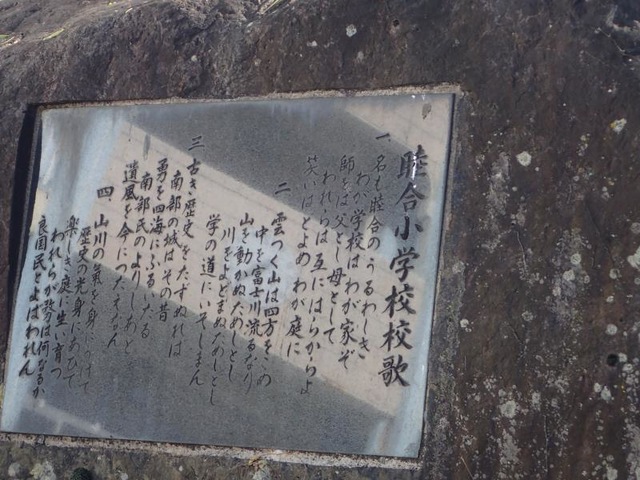 睦合小学校校歌
一、名も睦合のうるわしき
わが学校はわが家ぞ
師をば父とし母として
われらは互にはらからよ
笑いはとよめわが庭に
二 雲つく山は四方をかこめ
中を富士川流るなり
山を動かぬためしとし
川をよどまぬためしとし
学の道にいそしまん
三 古き歴史をたずぬれば
南部の城はその昔
勇を四海にふるいたる
南部氏のよりしあと
遺風を今につたえなん
四、山川の気を身にうけて
歴史の光身にあびて
楽しき庭に生い育つ
われらが努は何なるか
良国民とよばわれん